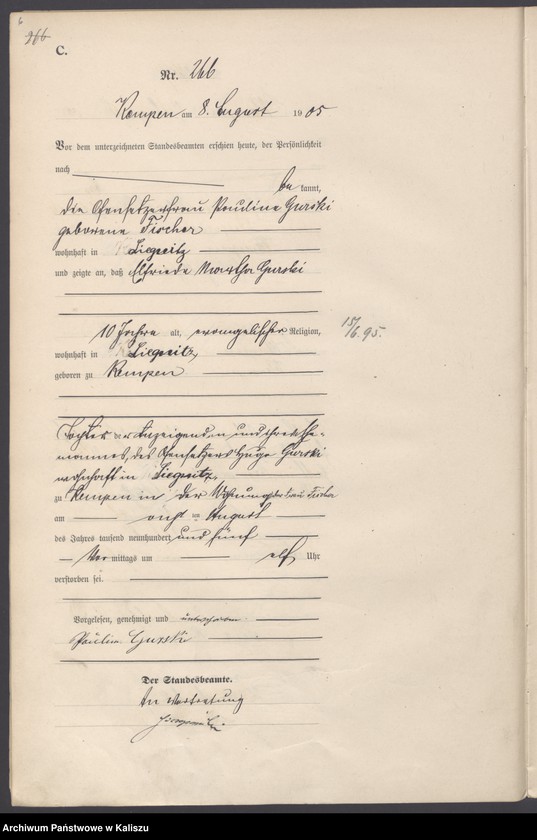 6
266
C.
Nr. 266
Kempen am 8. August 1905
Vor dem unterzeichneten Standesbeamten erschien heute, der Persönlichkeit
nach
be kannt,
die Ofensetzerfrau Pauline Gurski
geborene Fischer
wohnhaft in Liegnitz
und zeigte an, daß Elfriede Martha Gurski
10 Jahre alt, evangelischer Religion,
15/6. 95.
wohnhaft in Liegnitz,
geboren zu Kempen
Tochter der Anzeigenden und ihres Ehe-
mannes, des Ofensetzers Hugo Gurski
wohnhaft in Liegnitz,
zu Kempen in der Wohnung der Frau Fischer
am acht ten August
des Jahres tausend neunhundert und fünf
Vor mittags um elf Uhr
verstorben sei.
Vorgelesen, genehmigt und unterschrieben
Pauline Gurski
Der Standesbeamte.
In Vertretung
Archiwum Państwowe w Kaliszu